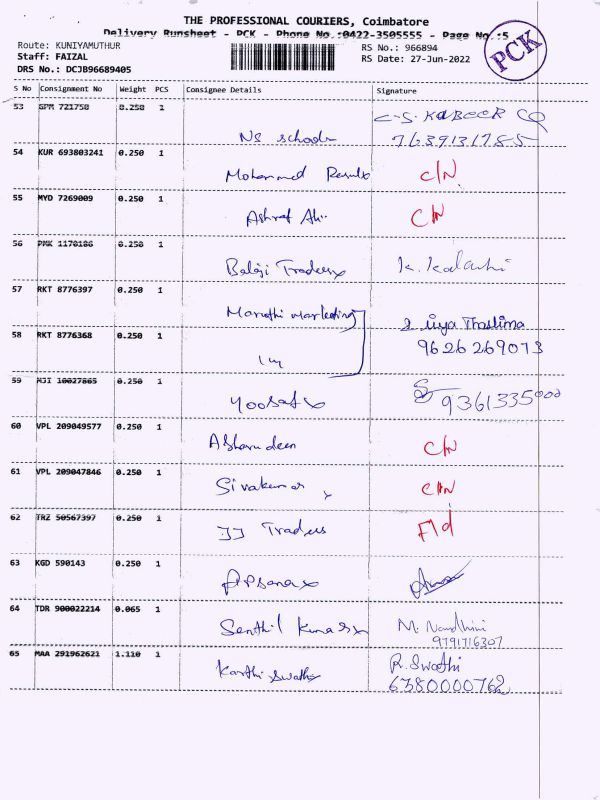 THE PROFESSIONAL COURIERS, Coimbatore
Delivery Runsheet - PCK - Phone No.:0422-3505555 - Page No.:5
Route: KUNIYAMUTHUR
Staff: FAIZAL
DRS No.: DCJB96689405
RS No.: 966894
RS Date: 27-Jun-2022
PCK
S No Consignment No Weight PCS Consignee Details Signature
53 GPM 721750 0.250 1
NS School C.S. KABEER
7639131785
54 KUR 693803241 0.250 1
Mohammed C/N
55 MYD 7269009 0.250 1
Ashraf Ali C/N
56 PMK 1170186 0.250 1
Balaji Traders K.
57 RKT 8776397 0.250 1
Maruthi Marketing Thaslima
58 RKT 8776368 0.250 1
9626269073
59 MJI 10027865 0.250 1
Yoosaf 9361335000
60 VPL 209049577 0.250 1
Asharudeen C/N
61 VPL 209047846 0.250 1
Sivakumar C/N
62 TRZ 50567397 0.250 1
JJ Traders
63 KGD 590143 0.250 1
Apsana
64 TDR 900022214 0.065 1
Senthil Kumar M. Nandhini
9791716307
65 MAA 291962621 1.110 1
Karthi Swathi R. Swathi
6380000762